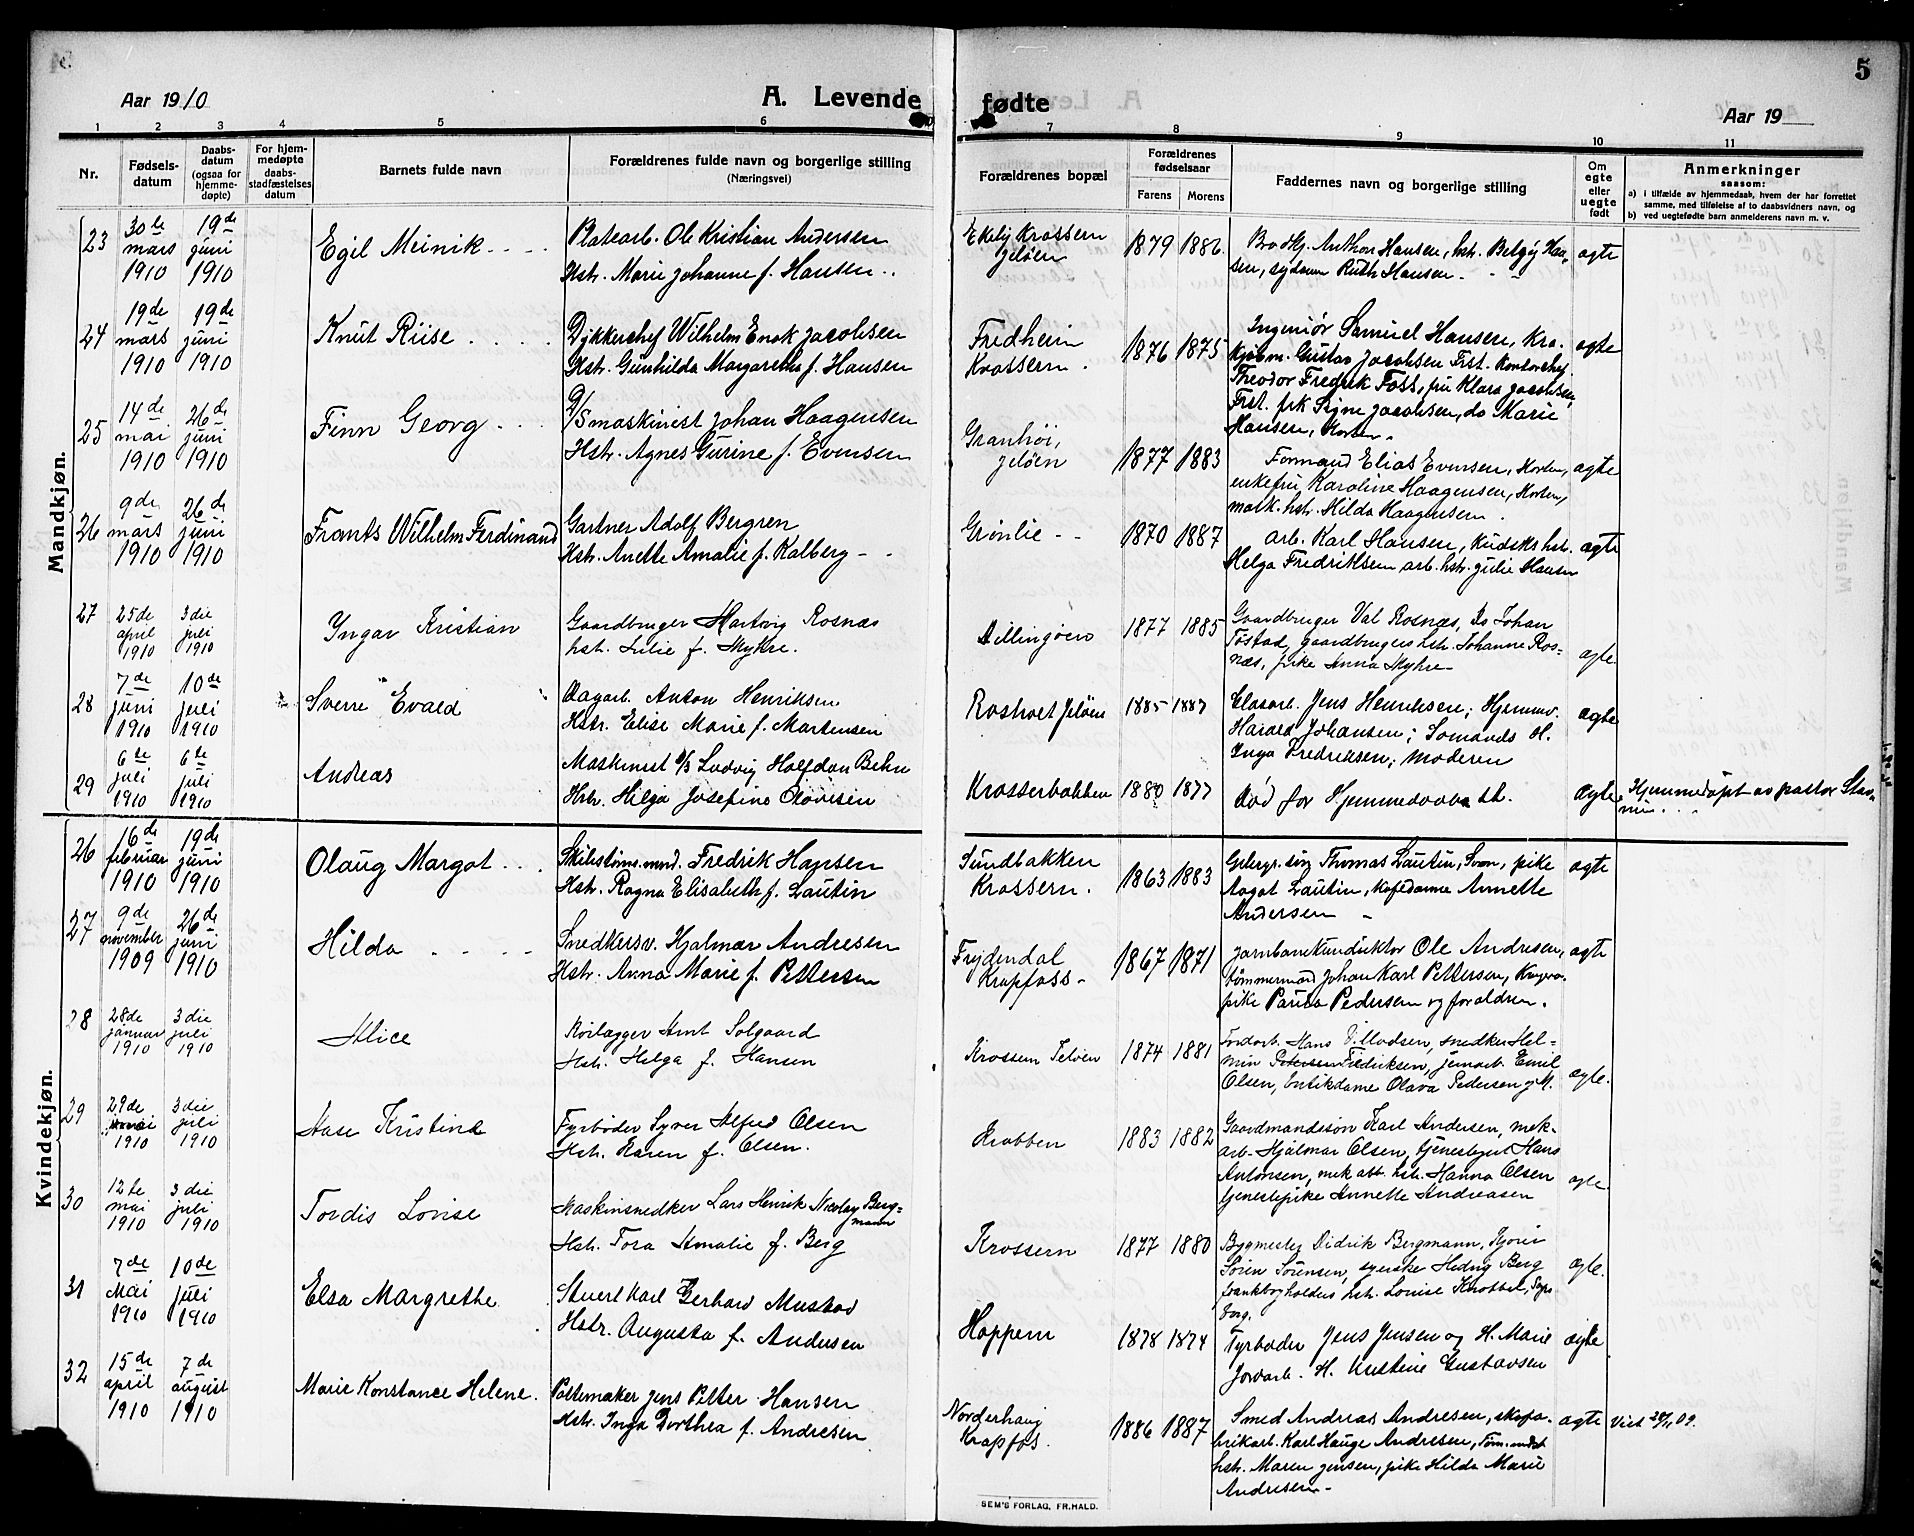 Aar 1910
A. Levende fødte
Aar 19
5
1 2 3 4 5 6 7 8 9 10 11
Nr.
Fødsels-
datum
Daabs-
datum
(ogsaa for
hjemme-
døpte)
For hjem-
medøpte
daabs-
stadfæstelses
datum
Barnets fulde navn
Forældrenes fulde navn og borgerlige stilling
(Næringsvei)
Forældrenes bopæl
Forældrenes
fødselsaar
Farens Morens
Faddernes navn og borgerlige stilling
Om
egte
eller
uegte
født
Anmerkninger
saasom:
a) i tilfælde av hjemmedaab, hvem der har forrettet
samme, med tilføielse af to daabsvidners navn, og
b) ved uegtefødte barn anmelderens navn m. v.
Mandkjøn.
23
30te
mars
1910
19de
juni
1910
Egil Meinik
Platearb. Ole Kristian Andersen
Hstr. Marie Johanne f. Hansen
Ekely Krossern
Jeløen
1879 1886
Anthon Hansen, hstr. Belgij Han-
sen, sydame Ruth Hansen
ægte
24
19de
mars
1910
19de
juni
1910
Knut Riise
Dykkerchef Wilhelm Enok Jacobsen
Hstr. Gunhilda Margarethe f. Hansen
Fredheim
Krossern.
1876 1875
Ingeniør Samuel Hansen, Kra.
Kjøbm. Gustav Jacobsen Frst. Kontorchef
Theodor Fredrik Foss, fru Klara Jacobsen,
Frst. frk Signe Jacobsen, do Marie
Hansen, Horten
ægte
25
14de
mai
1910
26de
juni
1910
Finn Georg
D/S maskinist Johan Haagensen
Hstr. Agnes Gurine f. Evensen
Granhøi,
Jeløen
1877 1883
Formand Elias Evensen, Horten,
enkefru Karoline Haagensen, Horten,
mask. hstr. Hilda Haagensen.
ægte
26
9de
mars
1910
26de
juni
1910
Frants Wilhelm Ferdinand
Gartner Adolf Bergren
Hstr. Anette Amalie f. Kalberg
Grønlie
1870 1887
arb. Karl Hansen, Kudsks hst.
Helga Fredriksen arb. hstr. Julie Hansen
ægte
27
25de
april
1910
3die
juli
1910
Yngar Kristian
Gaardbruger Hartvig Rosnæs
hst. Lilie f. Myhre.
Dillingøen
1877 1885
Gaardbruger Val Rosnæs, Do Johan
Tøstad, gaardbrugers hstr. Johanne Ros-
næs, pike Anna Myhre
ægte.
28
7de
juni
1910
10de
juli
1910
Sverre Evald
Dagarb. Anton Henriksen
Hstr. Elise Marie f. Martensen
Roshvet Jeløen
1885 1887
Jens Henriksen; Hjemmev.
Harald Johansen; Sømands H.
Inga Fredriksen; moderen
ægte
29
6te
juli
1910
6te
juli
1910
Andreas
Maskinist D/S Ludvig Halfdan Behn
Hstr. Helga Josefine Olavesen
Krosserbakken
1880 1877
Død før Hjemmedaabs st.
ægte
Hjemmedøpt av pastor Stav-
Kvindekjøn.
26
16de
februar
1910
19de
juni
1910
Olaug Margot
Skibstøms.mnd. Fredrik Hansen
Hstr. Ragna Elisabeth f. Lautin
Sundbakken
Krossern.
1863 1883
Thomas Lautin, Svan, pike
Aagot Lautin, Kafedame Annette
Andersen
ægte
27
9de
november
1909
26de
juni
1910
Hilda
Snedkersv. Hjalmar Andresen
Hstr. Anna Marie f. Pettersen
Frydendal
Krapfoss
1867 1871
Jernbanekunduktør Ole Andresen,
tømmermand Johan Karl Pettersen,
pike Paula Pedersen og forældren.
ægte
28
28de
januar
1910
3die
juli
1910
Alice
Rørlægger Arnt Solgaard
Hstr. Helga f. Hansen
Krossern Jeløen
1874 1881
Jordarb. Hans Villadsen, snedker Hel-
min Fredriksen, jernarb. Emil
Olsen, butikdame Olava Pedersen og M.
ægte.
29
29de
mai
1910
3die
juli
1910
Aase Kristine
Fyrbøder Syver Alfred Olsen
Hstr. Karen f. Olsen.
Krabben
1883 1882
Gaardmandssøn Karl Andersen, mek-
arb. Hjalmar Olsen, tjenestegut Hans
Antonsen, mek arb. hst. Hanna Olsen
tjenestepike Annette Andreasen
ægte
30
12te
mai
1910
3die
juli
1910
Tordis Lovise
Maskinsnedker Lars Henrik Nicolay Berg-
mann
Hstr. Tora Amalie f. Berg
Krossern
1877 1880
Bygmester Didrik Bergmann,
Søren Sørensen, syerske Hedvig Berg
hst. Lovise
borg.
ægte.
31
7de
Mai
1910
10de
juli
1910
Elsa Margrethe
Stuert Karl Gerhard Mustad
Hstr. Augusta f. Andersen
Hoppern
1878 1874
Fyrbøder Jens Jensen og H. Marie
Jordarb. H. Kristine Gustavsen
ægte
32
15de
april
1910
7de
august
1910
Marie Konstance Helene.
Pottemaker Jens Petter Hansen
Hstr. Inga Dorthea f. Andresen
Norderhaug
Krapfos.
1886 1887
Smed Andreas Andresen, skofa-
brikarb. Karl Hauge Andresen, Tøm.mnds
hstr. Maren Jensen, pike Hilda Marie
Andresen
ægte
Viet 28/11 09.
SEM'S FORLAG, FR.HALD.